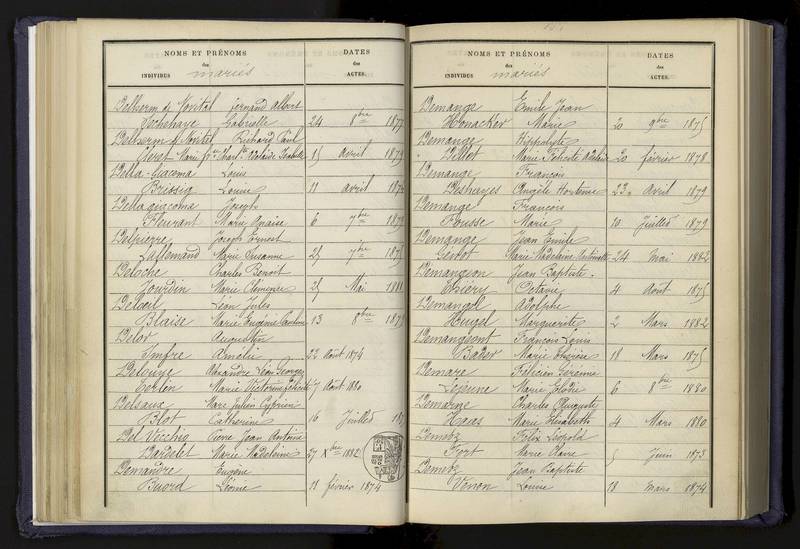 NOMS ET PRÉNOMS
des
INDIVIDUS mariés
DATES
des
ACTES.
Delherm de Novital Fernand Albert
Gabrielle 24 8bre 1877
Delherm de Novital Richard Paul
15 avril 1879
Della-Giacoma Louis
Brissig Louise 11 avril 1874
Dellagiacoma Joseph
Fleurant Marie Anaïse 6 7bre 1879
Delpierre Joseph Ernest
Lallemand Marie Susanne 25 7bre 1875
Deloche Charles Benoit
Jourdin Marie Clémence 25 Mai 1881
Delœil Léon Jules
Blaise Marie Eugénie 13 8bre 1879
Delor Augustin
Imfre Amélie 22 Août 1874
Alexandre Léon Georges
Marie Victorine 7 Août 1880
Delsaux Marc Julien Cyprien
Blot Catherine 16 Juillet
Del Vecchio Pierre Jean Antoine
Bardelet Marie Madeleine 27 Xbre 1882
Demandre Eugène
Buord Léonie 18 février 1874
NOMS ET PRÉNOMS
des
INDIVIDUS mariés
DATES
des
ACTES.
Demange Emile Jean
Honacker Marie 20 9bre 1875
Demange Hippolyte
Marie Félicité 20 février 1878
Demange François
Deshayes Angèle Hortense 23 Avril 1879
Demange François
Pousse Marie 10 Juillet 1879
Demange Jean Emile
Marie Madeleine Antoinette 24 Mai 1882
Demangeon Jean Baptiste
Thiéry Octavie 4 Août 1875
Demangel Adolphe
Hugel Marguerite 2 Mars 1882
Demangeont François Louis
Bader Marie Thérèse 18 Mars 1875
Demare Félicien Gérémie
Lejeune Marie Elodie 6 8bre 1880
Demarne Charles Auguste
Haas Marie Elisabeth 4 Mars 1880
Demetz Félix Léopold
Fort Marie Claire 5 Juin 1873
Demetz Jean Baptiste
Venon Louise 18 mars 1874